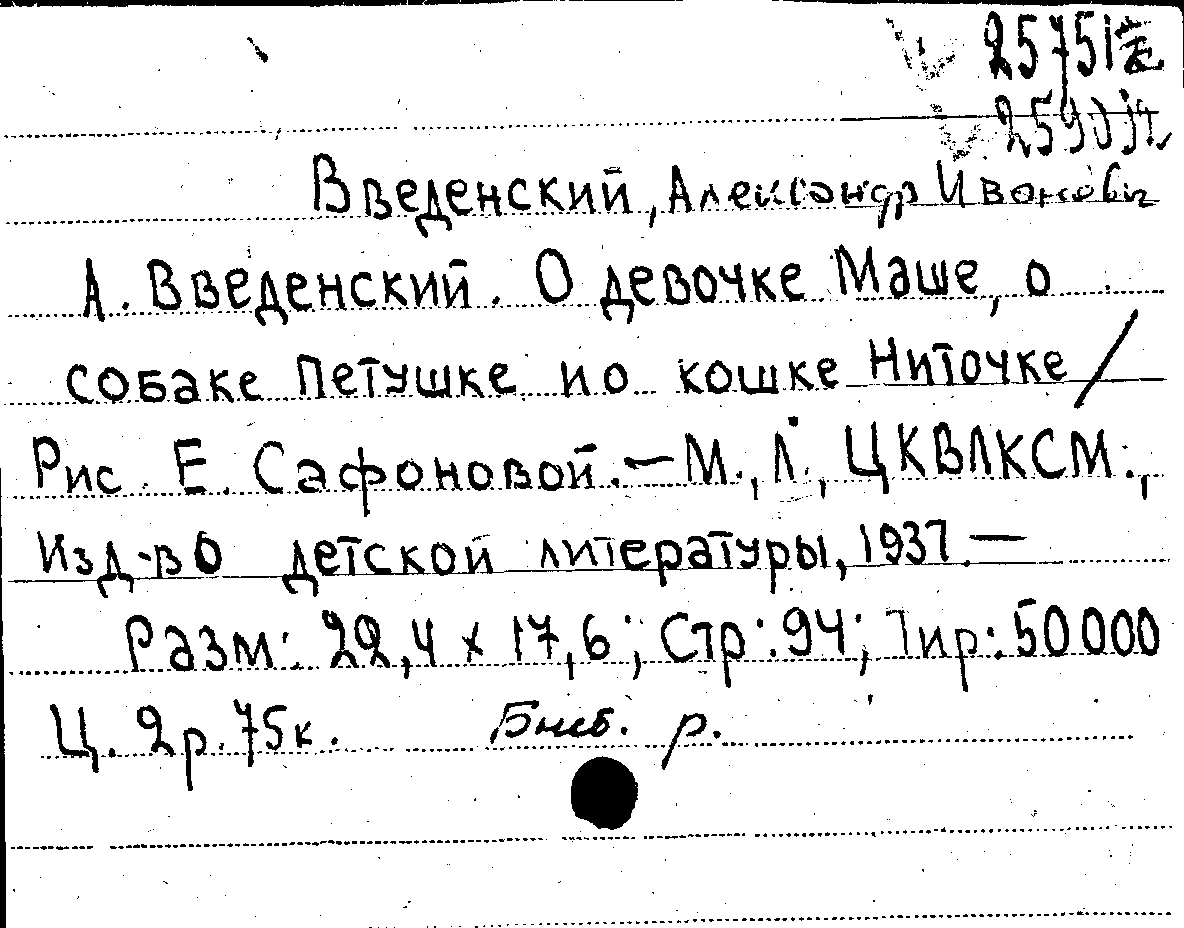 25751
Введенский, Александр Иванови
А. Введенский. О девочке Маше, о
собаке Петушке и о кошке Ниточке /
Рис. Е. Сафоновой. — М., Л., ЦКВЛКСМ.,
Изд-во детской литературы, 1937. —
Разм: 22,4 x 17,6; Стр: 94; Тир: 50000
Ц. 2р. 75к. Биб. р.